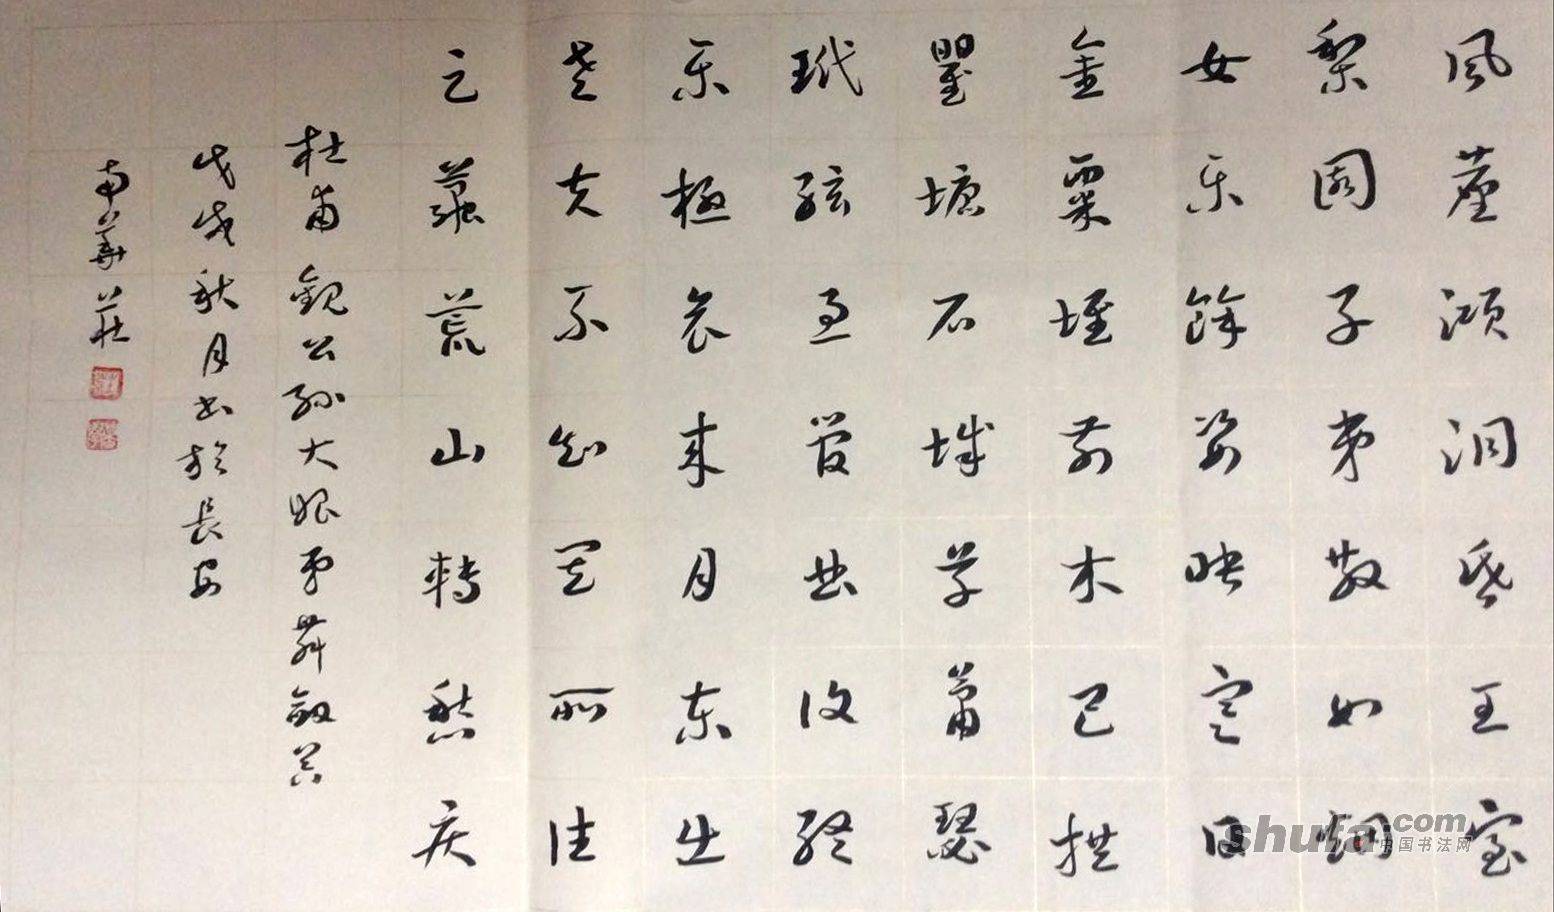 風塵澒洞昏王室
梨園子弟散如烟
女乐餘姿映寒日
金粟堆前木已拱
瞿塘石城草蕭瑟
玳絃急管曲復終
乐極哀来月東出
老夫不知其所往
足繭荒山轉愁疾
杜甫觀公孫大娘弟舞劍器
戊戌秋月书於長安
南華莊
shufa.com
中国书法网